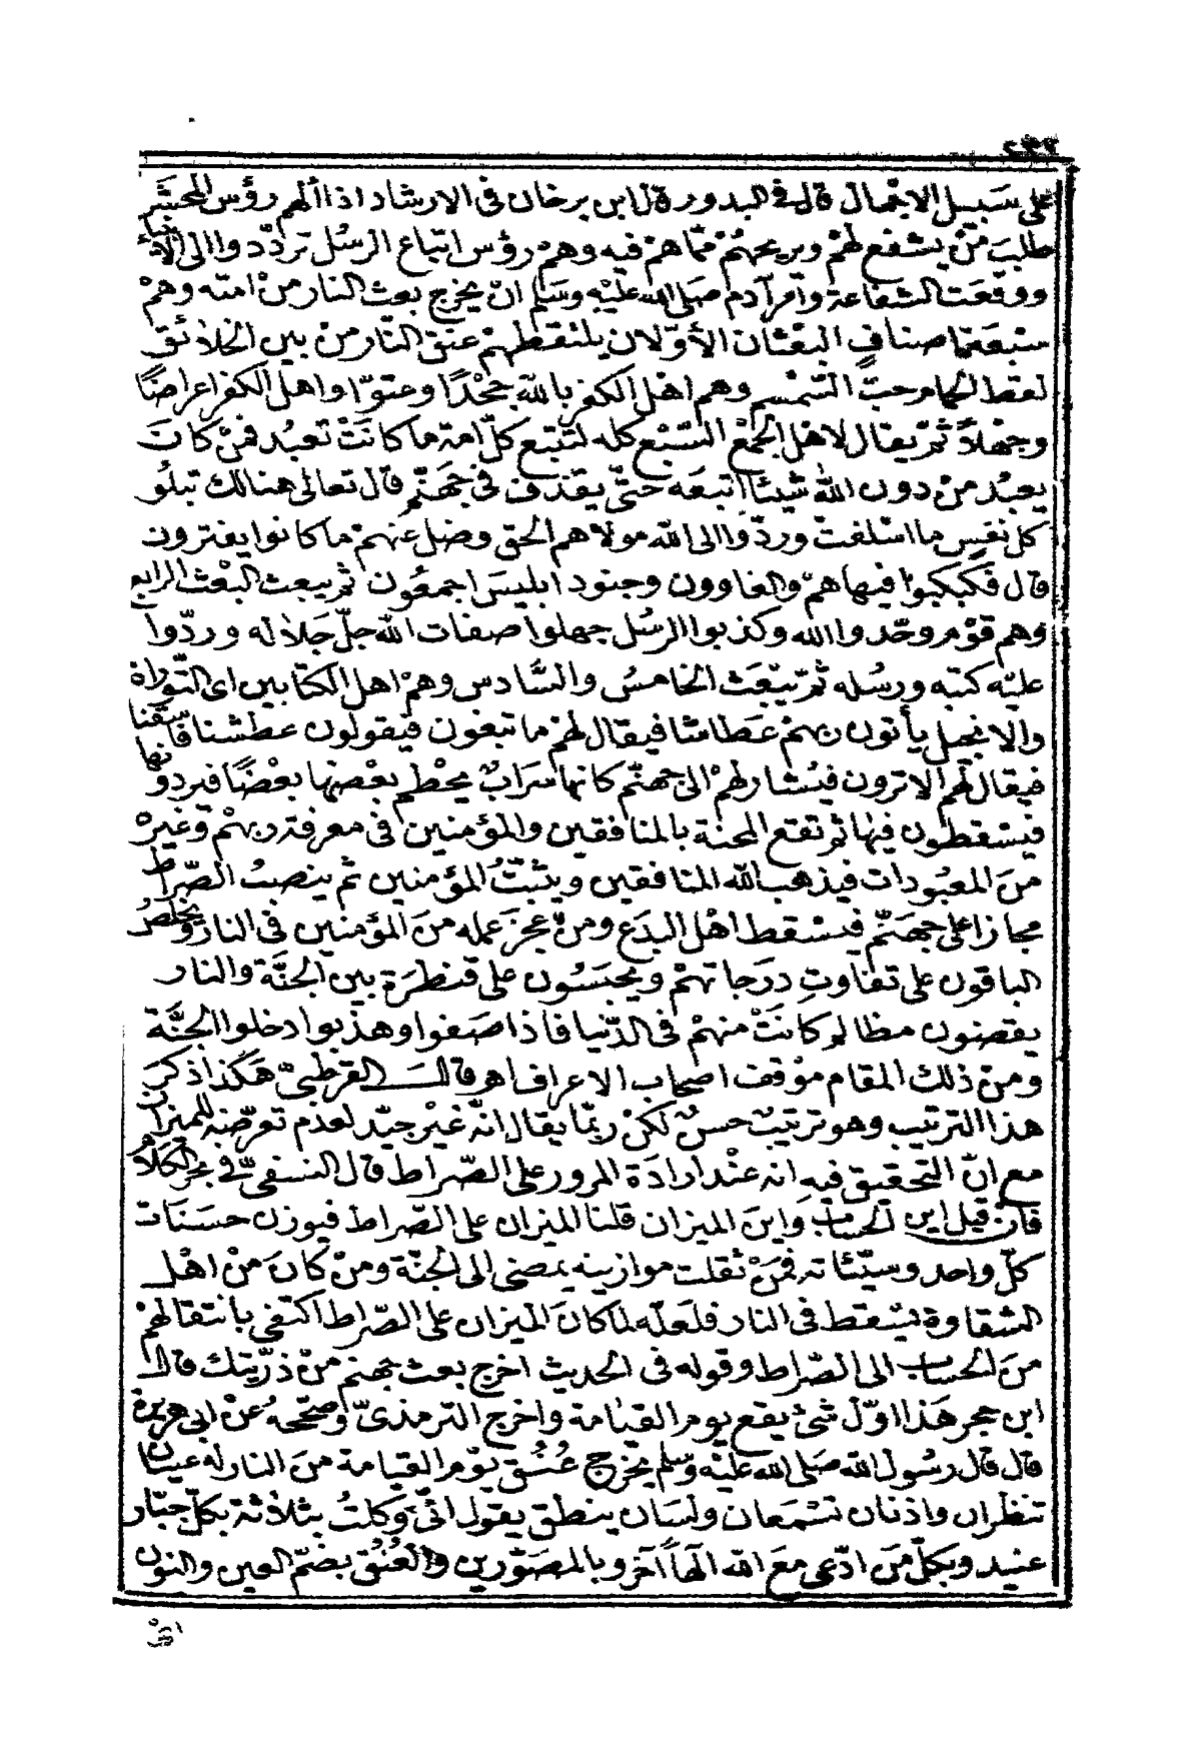 ٢٣٢
على سَبيل الاجمال قال في البدور قال ابن برخان فى الارشاد اذا ألهم رؤس المحشر
طلبَ مَنْ يشفع لهمْ ويريحهُمْ ممّا همْ فيه وهمْ رؤس اتباع الرسُل تردّدوا الى الانبياء
ووقعَت الشفاعة وأمر آدم صلى الله عليْه وسَلم انْ يخرج بعث النار منْ امته وهمْ
سبْعَة اصنافٍ البعْثان الأوّلان يلتقطهمْ عنق النّار منْ بين الخلائق
لقط الحمام حبّ السّمْسم وهم اهْل الكفر بالله جحْدًا وعتوّا واهل الكفر اعراضًا
وجهْلاً ثمّ يقال لاهْل الجمْع السّبْع كله لتتبع كلّ امة ما كانَتْ تعبُد فمنْ كانَ
يعبُد منْ دون الله شيْئا اتبعَه حتّى يقذف فى جهَنّم قال تعالى هنالك تبلُو
كل نفسٍ ما اسْلفتْ وردّوا الى الله مولاهم الحق وضل عنهمْ ما كانوا يفترون
قال فَكبكبوُا فيها همْ والغاوون وجنود ابليسَ اجمعُون ثم يبعث البعْث الرابع
وهم قوْم وحّدوا الله وكذبوا الرسُل جهلوا صفات الله جلّ جَلاله وردّوا
عليْه كتبه ورسُله ثمّ يبْعَث الخامسُ والسَّادس وهمْ اهل الكتابين اى التّوراة
والانجيل يأتون ربهمْ عَطاشا فيقال لهمْ ما تبغون فيقولون عطشنا فاسْقنا
فيقال لهم الا ترون فيُشار لهمْ الى جهنّم كانها سَرابٌ يحْطم بعْضها بعْضًا فيردونها
فيسْقطون فيها ثم تقع المحنة بالمنافقين والمؤمنين فى معرفة ربهمْ وغيرْ
منَ المعبُودات فيذهب الله المنافقين ويثبّتُ المؤمنين ثم ينصبُ الصّراط
مجازا على جهَنّم فيسْقط اهْل البدَع ومنْ عجزَ عمله منَ المؤمنين فى النار ويخلصُ
الباقون على تفاوتِ درَجاتهمْ ويحبَسُون على قنطرَة بين الجنَّة والنار
يقصّون مظالم كانَتْ منهمْ فى الدّنيا فاذا صَفوا وهذبوا دخلوا الجنَّة
ومنْ ذلك المقام مؤقف اصحاب الاعراف اهـ قالَ القرطبىّ هَكذا ذكرَ ابن
هذا الترتيب وهو ترتيبٌ حسنٌ لكنْ ربّما يقال انّه غيْر جيّد لعدم تعرّضه للميزان
مع انّ التحقيق فيهِ انه عنْد ارادَة المرور على الصّراط قال النسفىّ في بحر الكلام
فان قيل اين الحساب واينَ الميزان قلنا الميزان على الصّراط فيوزن حسَنَات
كلّ واحد وسيّئاته فمَنْ ثقلت موازينه يمضى الى الجنّة ومنْ كانَ منْ اهْل
الشقاوة يسْقط فى النار فلعَلّه لما كانَ الميزان على الصّراط اكتفى بانتقالهمْ
منَ الحساب الى الصّراط وقوله فى الحديث اخرج بعث جهنم منْ ذرّيتك قال
ابن حجر هَذا اوّل شئ يقع يوم القيامة واخرج الترمذىّ وصحّحهُ عنْ ابى هريرة
قال قال رسُول الله صَلى الله عليْه وسّلم يخْرج عُنُق يوْم القيامة منَ النار له عينان
تنظران واذنان تسْمَعان ولسَان ينطق يقول انّى وَكلتُ بثلاثة بكلّ جبّار
عنيد وبكلّ منَ ادّعى معَ الله الهاً آخر وبالمصَوّرين والعُنُق بضمّ العين والنون